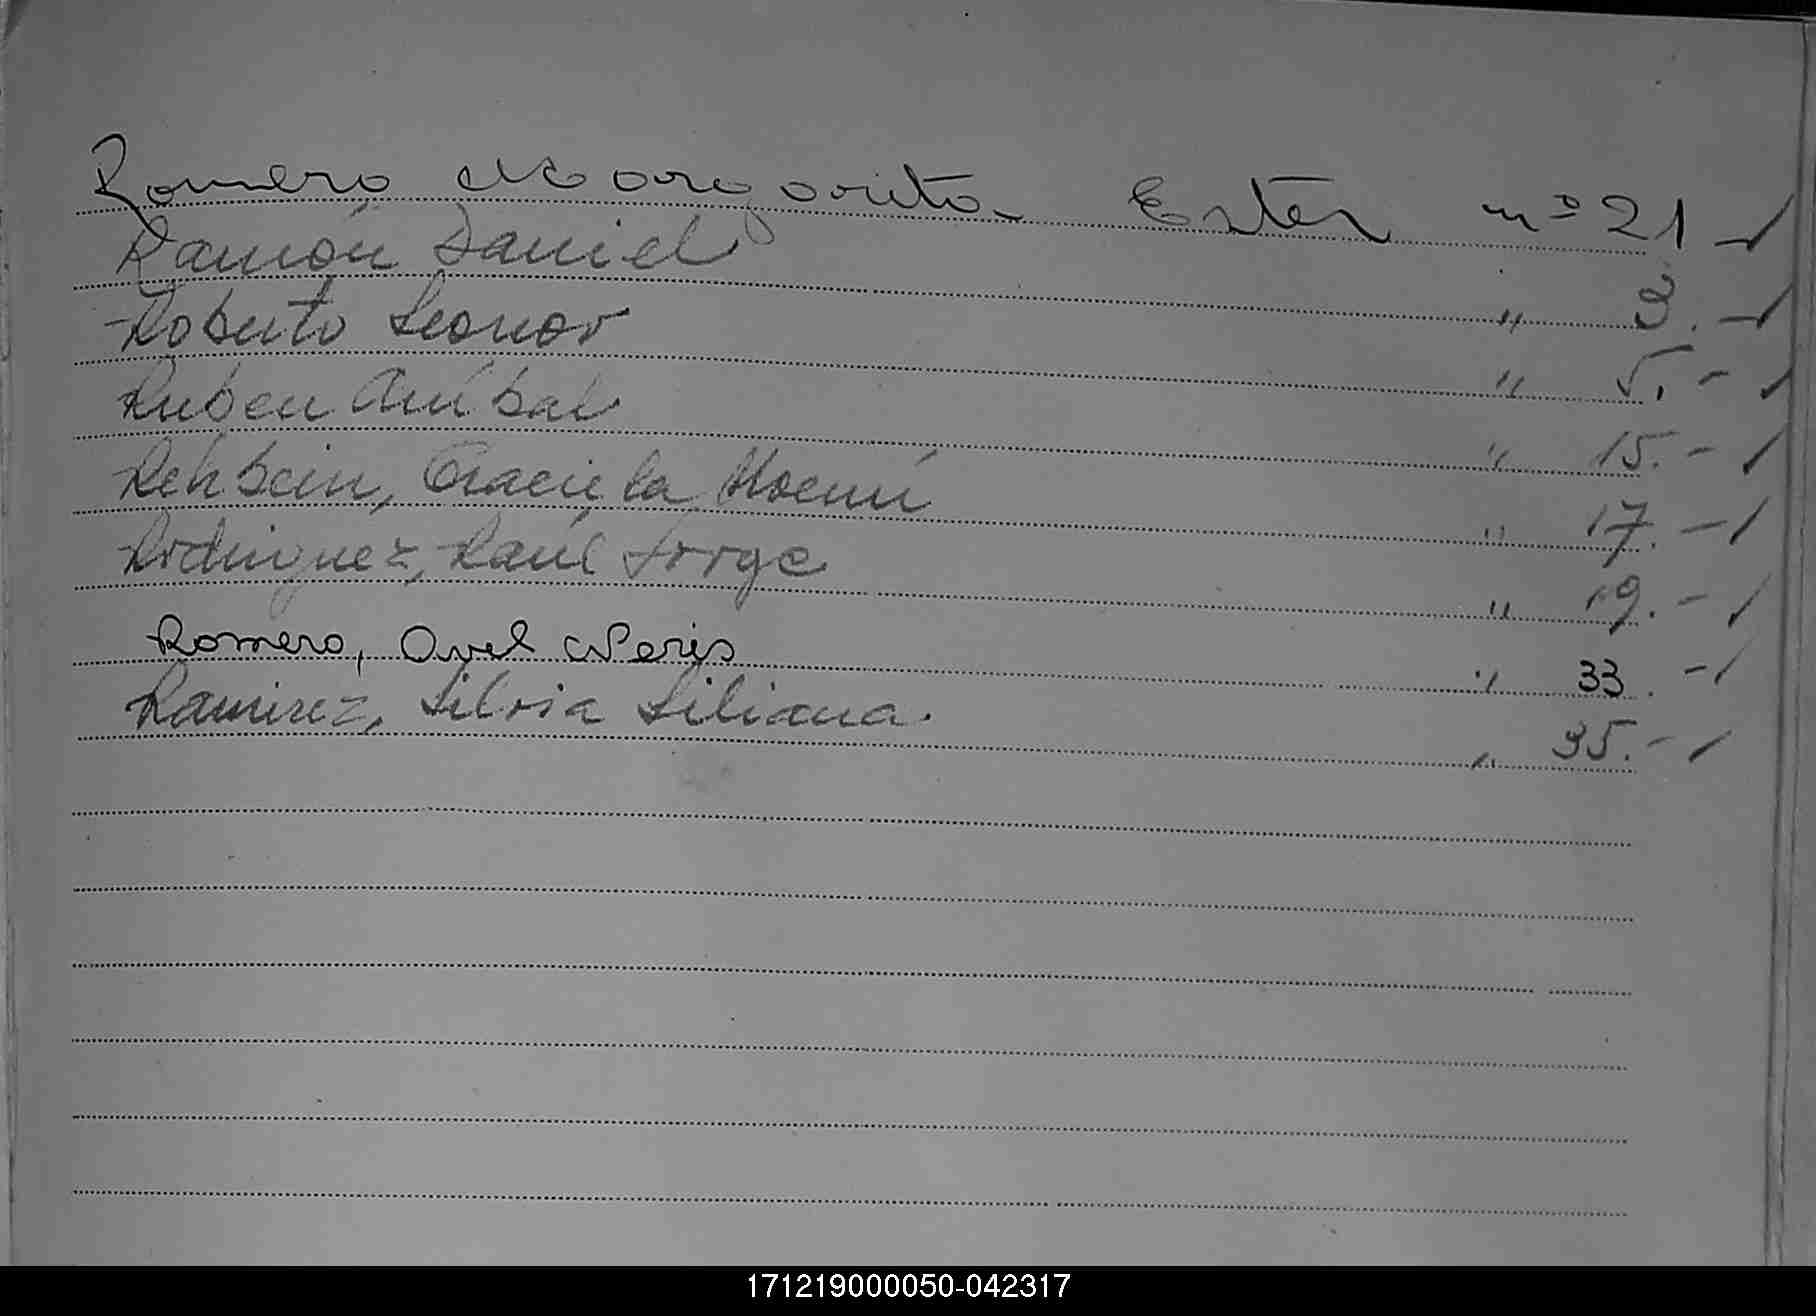 Romero Margarita Ester nº 21
Ramón Daniel " 3.-
Roberto Leonor " 5.-
Ruben Aníbal " 15.-
Rehbein, Graciela Noemí " 17.-
Rodriguez, Raúl Jorge " 19.-
Romero, Ovel Neris " 33.-
Ramirez, Silvia Liliana. " 35.-
171219000050-042317